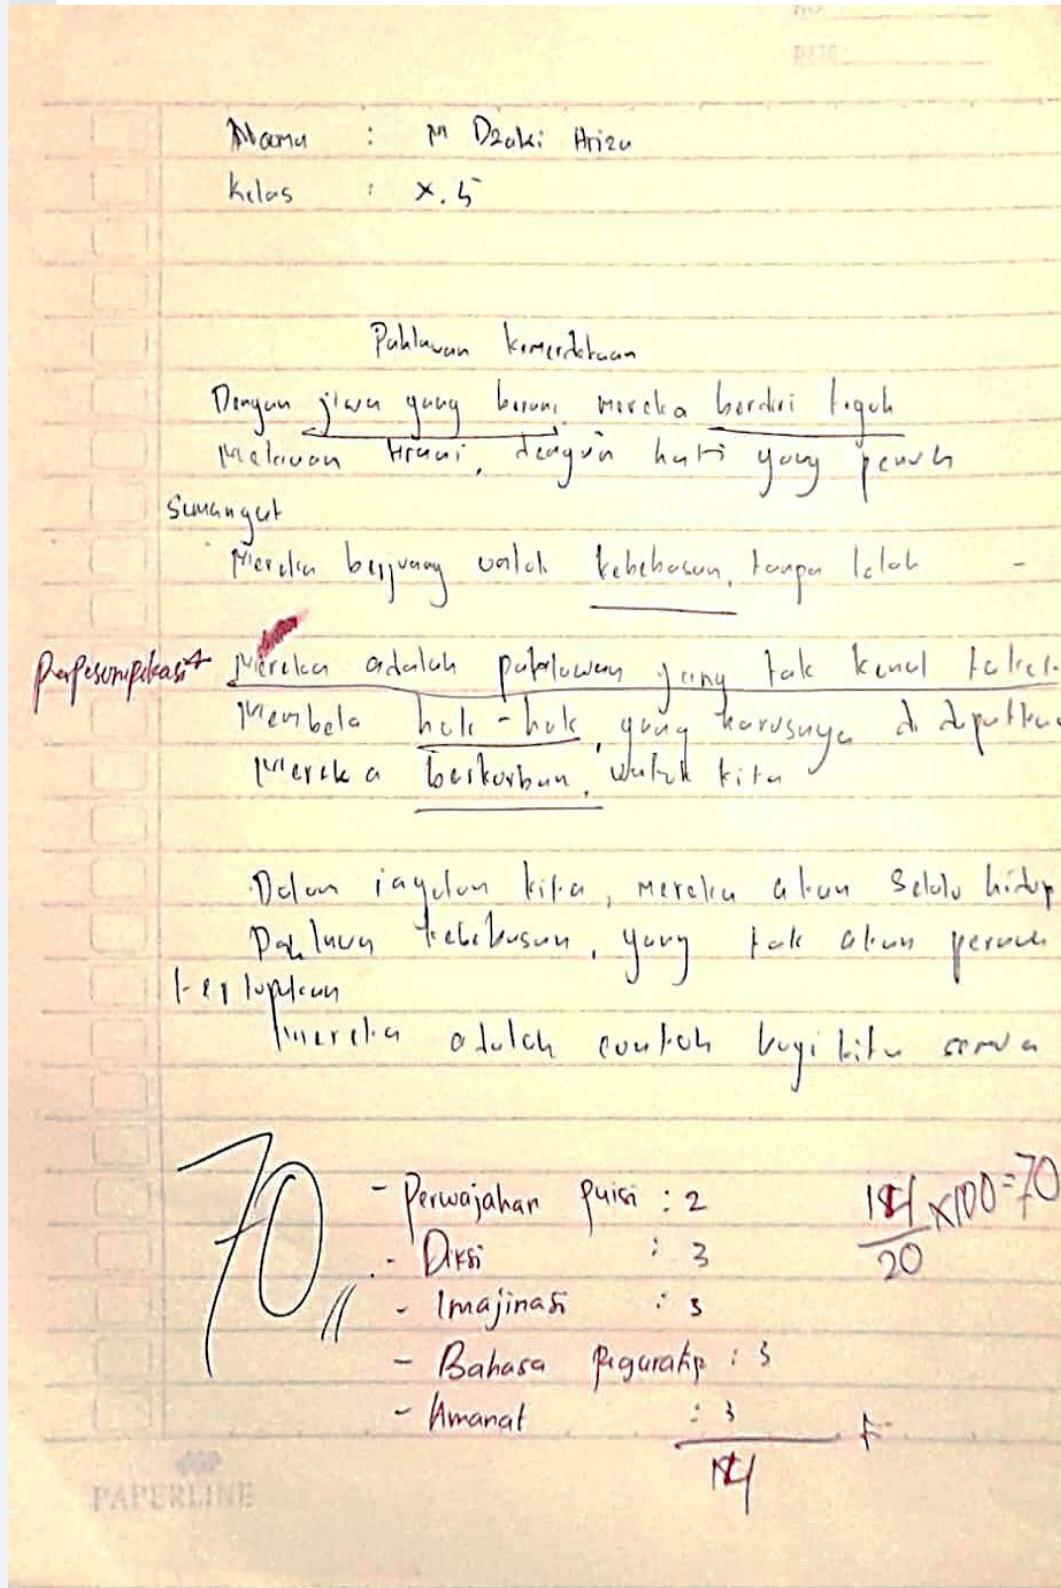 NO
DATE
Nama : M Dzaki Ariza
Kelas : X.5
Pahlawan kemerdekaan
Dengan jiwa yang berani, mereka berdiri teguh
Melawan tirani, dengan hati yang penuh
semangat
Mereka berjuang untuk kebebasan, tanpa lelah
Perpesonipikasi Mereka adalah pahlawan yang tak kenal
Membela hak-hak, yang harusnya di
Mereka berkorban, untuk kita
Dalam ingatan kita, mereka akan selalu hidup
Pahlawan kebebasan, yang tak akan pernah
terlupakan
Mereka adalah contoh bagi kita semua
70,,
- Perwajahan puisi : 2
- Diksi : 3
- Imajinasi : 3
- Bahasa piguratip : 3
- Amanat : 3
14 +
14/20 x100=70
PAPERLINE